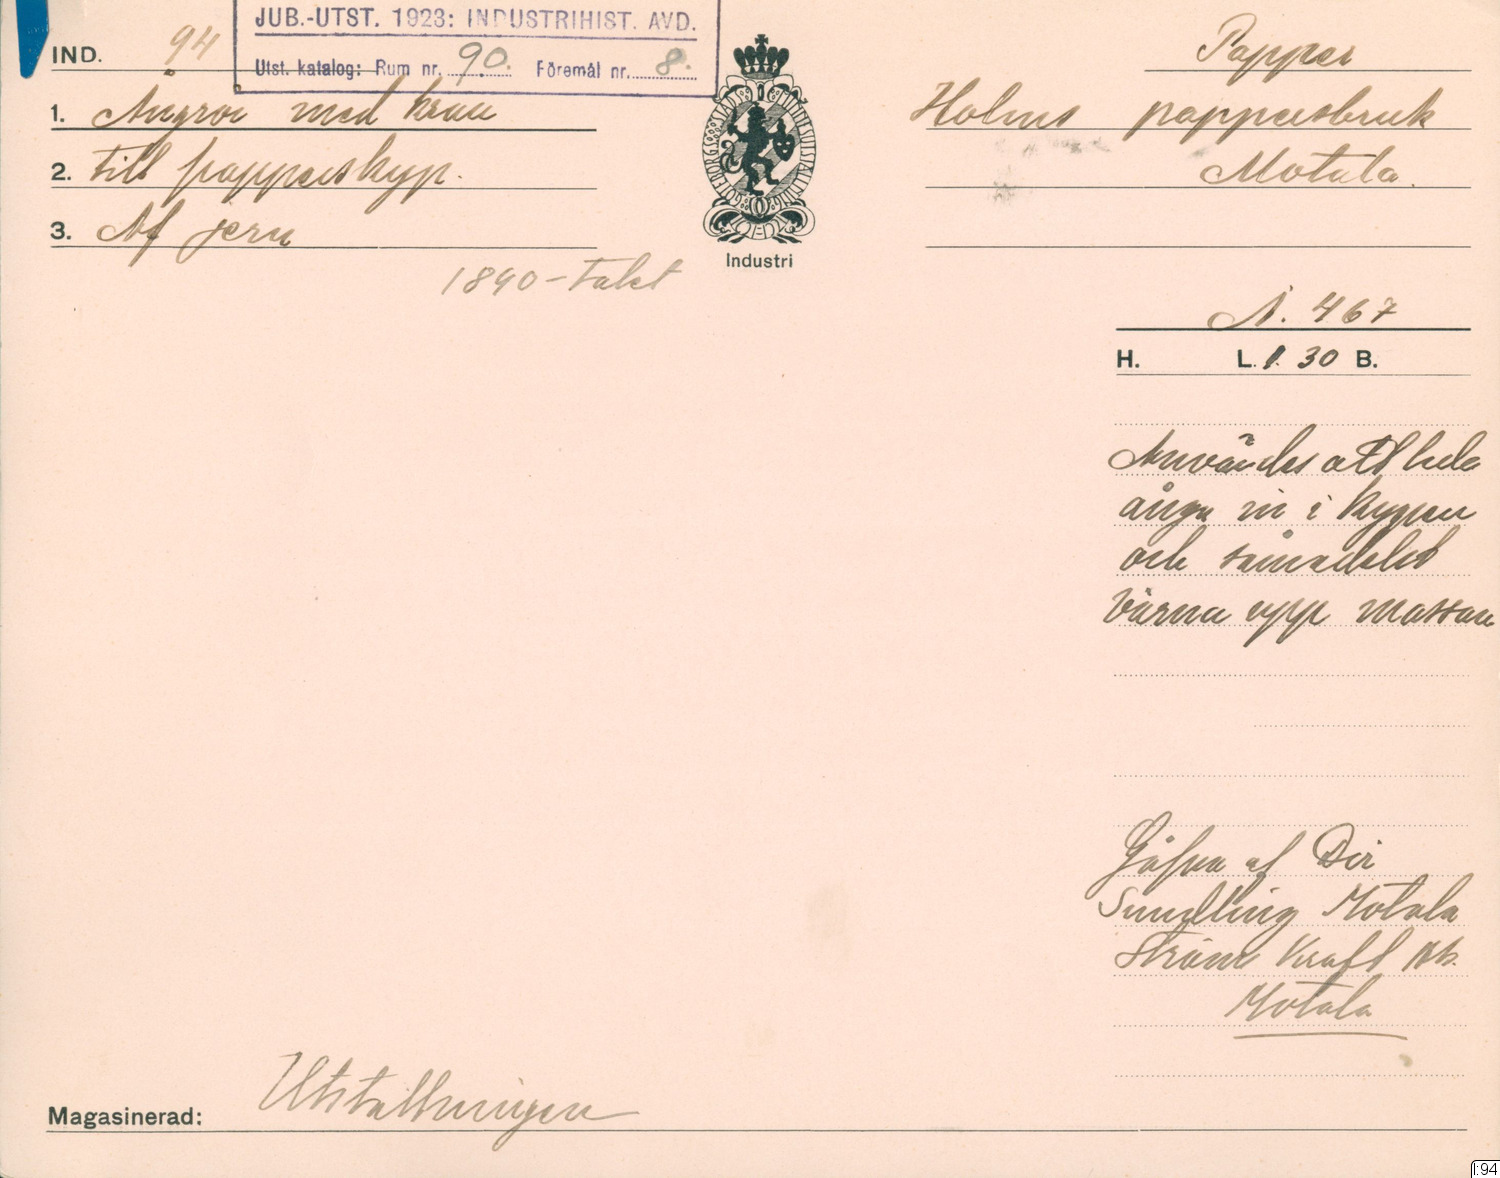 JUB.-UTST. 1923: INDUSTRIHIST. AVD.
Utst. katalog: Rum nr. 90. Föremål nr. 8.
IND. 94
1. Ångrör med kran
2. till papperskyp.
3. Af jern
1890-talet
GÖTEBORGS STADS MINNESUTSTÄLLNING
Industri
Papper
Holms pappersbruk
Motala.
N. 467
H. L. 1.30 B.
Användes att leda
ånga in i kypen
och
värma upp massan
Gåfva af Dir
Sundling Motala
Ströms Kraft AB.
Motala
Magasinerad: Utställningen
I:94